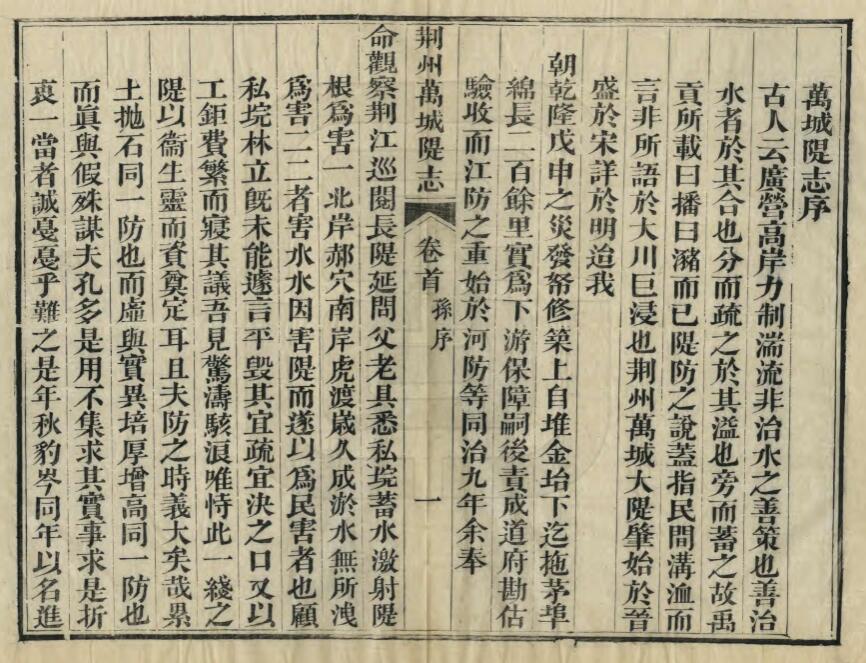 萬城隄志序
古人云廣營高岸力制湍流非治水之善策也善治
水者於其合也分而疏之於其溢也旁而蓄之故禹
貢所載曰播曰瀦而已隄防之說蓋指民間溝洫而
言非所語於大川巨浸也荆州萬城大隄肇始於晉
盛於宋詳於明迨我
朝乾隆戊申之災發帑修築上自堆金坮下迄拖茅埠
綿長二百餘里實爲下游保障嗣後責成道府勘估
驗收而江防之重始於河防等同治九年余奉
荆州萬城隄志
卷首
孫序
一
命觀察荆江巡閱長隄延問父老具悉私垸蓄水激射隄
根爲害一北岸郝穴南岸虎渡歲久成淤水無所洩
爲害二二者害水水因害隄而遂以爲民害者也顧
私垸林立旣未能遽言平毀其宜疏宜決之口又以
工鉅費繁而寢其議吾見驚濤駭浪唯恃此一綫之
隄以衞生靈而資奠定耳且夫防之時義大矣哉累
土拋石同一防也而虛與實異培厚增高同一防也
而眞與假殊謀夫孔多是用不集求其實事求是折
衷一當者誠戞戞乎難之是年秋豹岑同年以名進